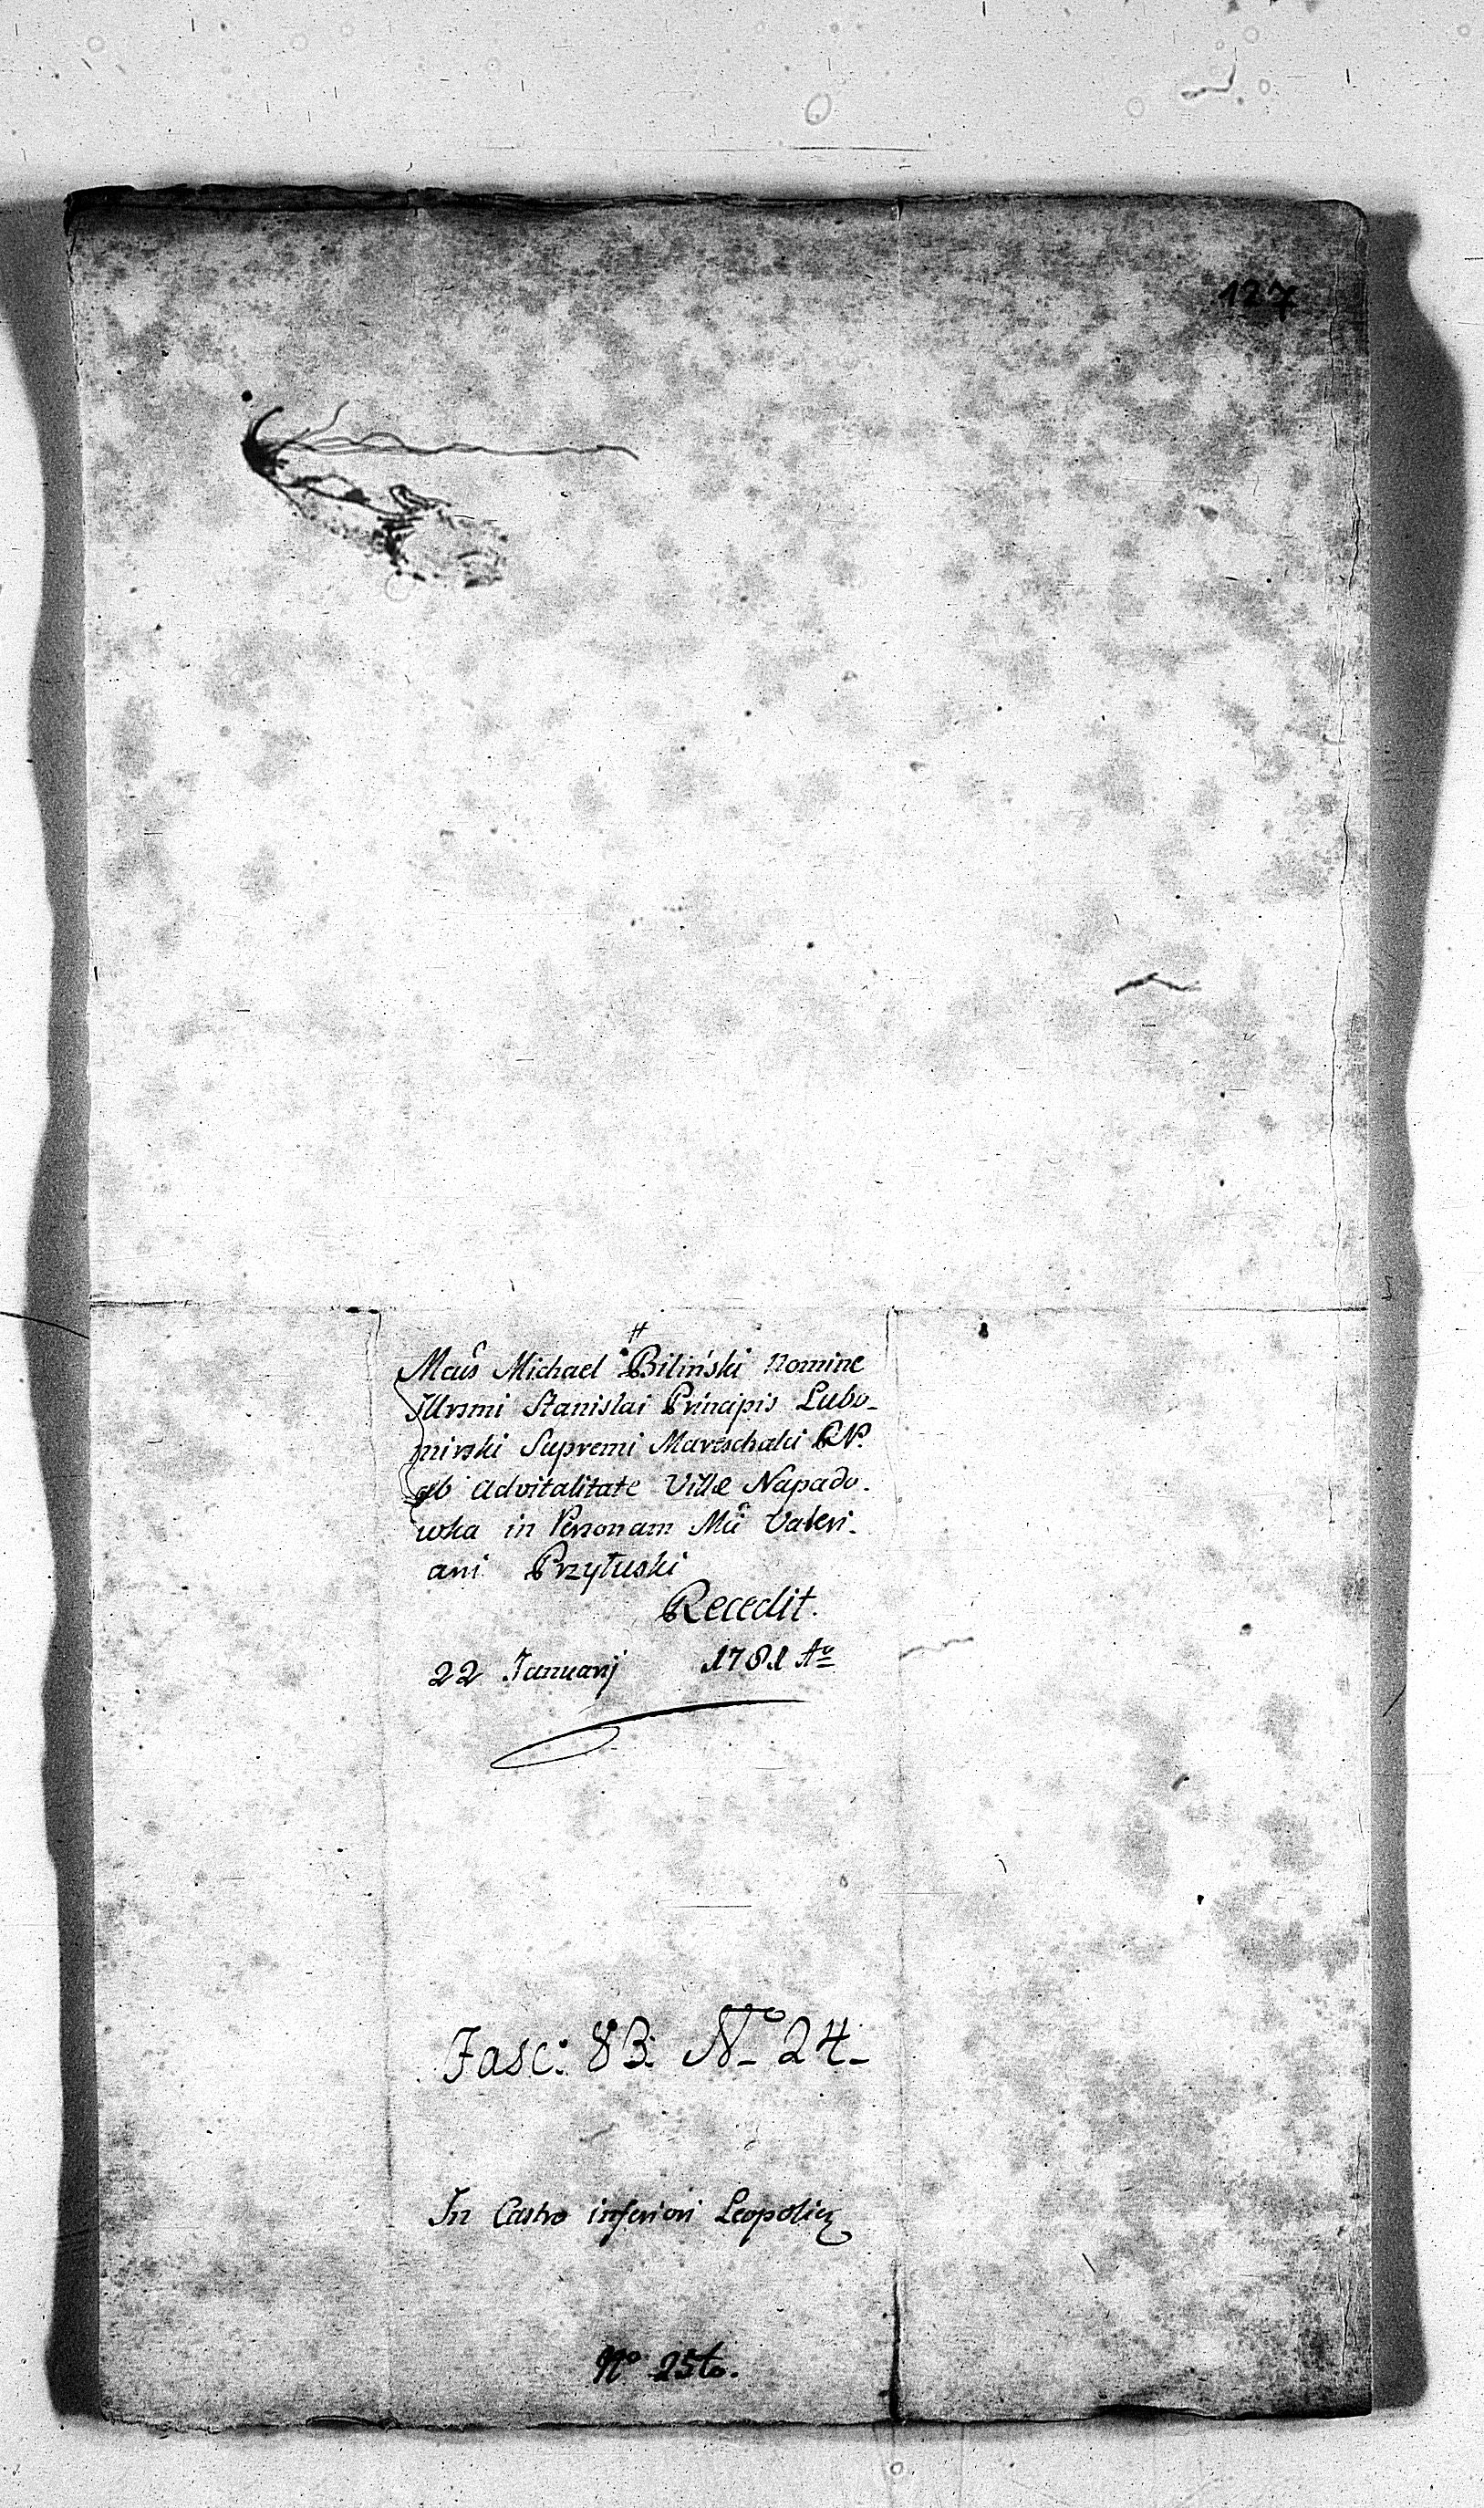 127
#
Mcus Michael Biliński Nomine
Illrsmi Stanislai Principis Lubo-
mirski Supremi Mareschalci RP.
ab Advitalitate Villæ Napado-
wka in Personam Mci Valeri-
ani Przyłuski
Recedit.
22 Januarij 1781 Ao
Fasc: 83. No 24-
In Castro inferiori Leopolien
No 25to.